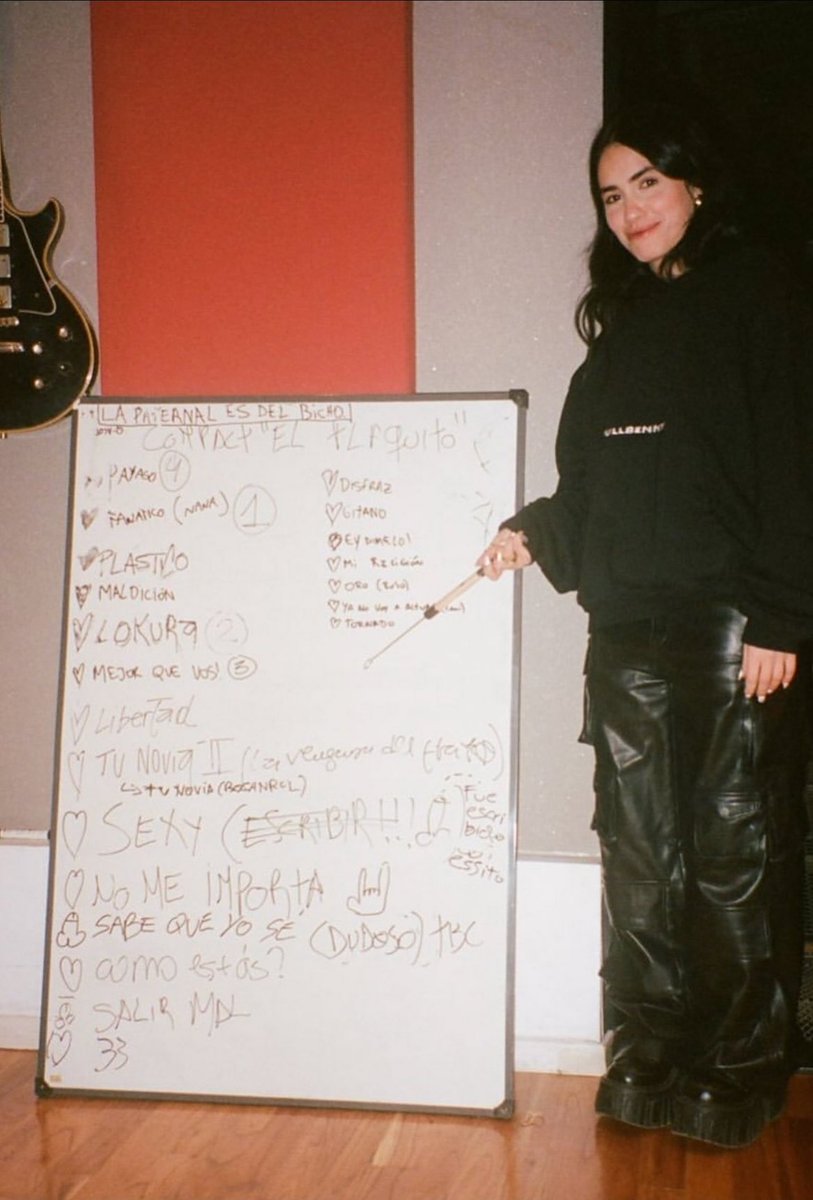 LA PATERNAL ES DEL BICHO
COMPACT "EL FLAQUITO"
PAYASO 4
FANATICO (NANA) 1
PLASTICO
MALDICIÓN
LOKURA 2
MEJOR QUE VOS! 3
Libertad
TU NOVIA II (La venganza del
↳ TU NOVIA (ROCANROL)
SEXY (ESCRIBIR!!!
Fue
escri
bielo
essito
NO ME IMPORTA
SABE QUE YO SÉ (DUDOSO) TBC
como estás?
SALIR MAL
33
DISFRAZ
GITANO
EY DIMELO!
MI RELIGIÓN
ORO
YA NO VOY A ACTUAR
TORNADO
ULLBENNY